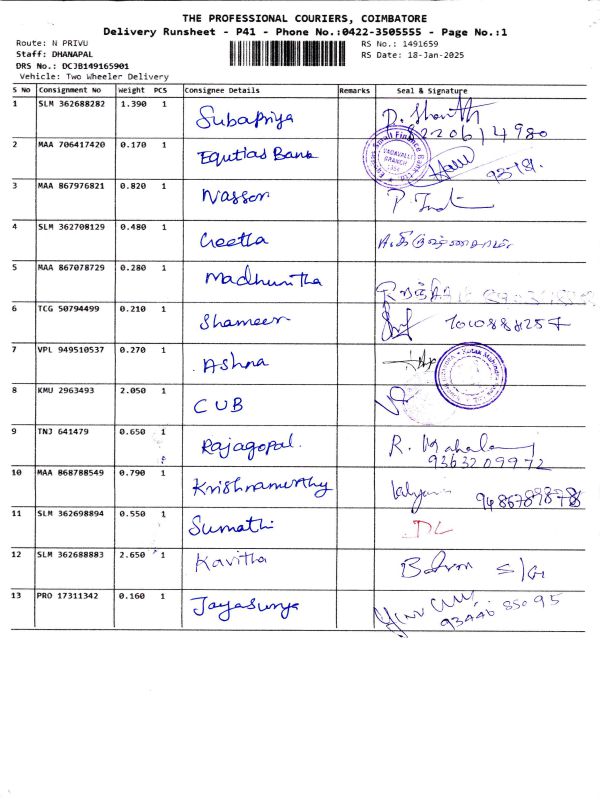 THE PROFESSIONAL COURIERS, COIMBATORE
Delivery Runsheet - P41 - Phone No.:0422-3505555 - Page No.:1
Route: N PRIVU RS No.: 1491659
Staff: DHANAPAL RS Date: 18-Jan-2025
DRS No.: DCJB149165901
Vehicle: Two Wheeler Delivery
S No Consignment No Weight PCS Consignee Details Remarks Seal & Signature
1 SLM 362688282 1.390 1 Subapriya D. Shanth
8220614980
2 MAA 706417420 0.170 1 Equtias Bank Small Finance Bank VADAVALLI BRANCH
3 MAA 867976821 0.820 1 Nasser
4 SLM 362708129 0.480 1 Geetha
5 MAA 867078729 0.280 1 Madhunitha
6 TCG 50794499 0.210 1 Shameer
7 VPL 949510537 0.270 1 Ashna Kotak Mahindra
8 KMU 2963493 2.050 1 CUB
9 TNJ 641479 0.650 1 Rajagopal. R. Mahala
9363209972
10 MAA 868788549 0.790 1 Krishnamurthy
11 SLM 362698894 0.550 1 Sumathi DL
12 SLM 362688883 2.650 1 Kavitha S/G
13 PRO 17311342 0.160 1 Jayasurya
93446 85095